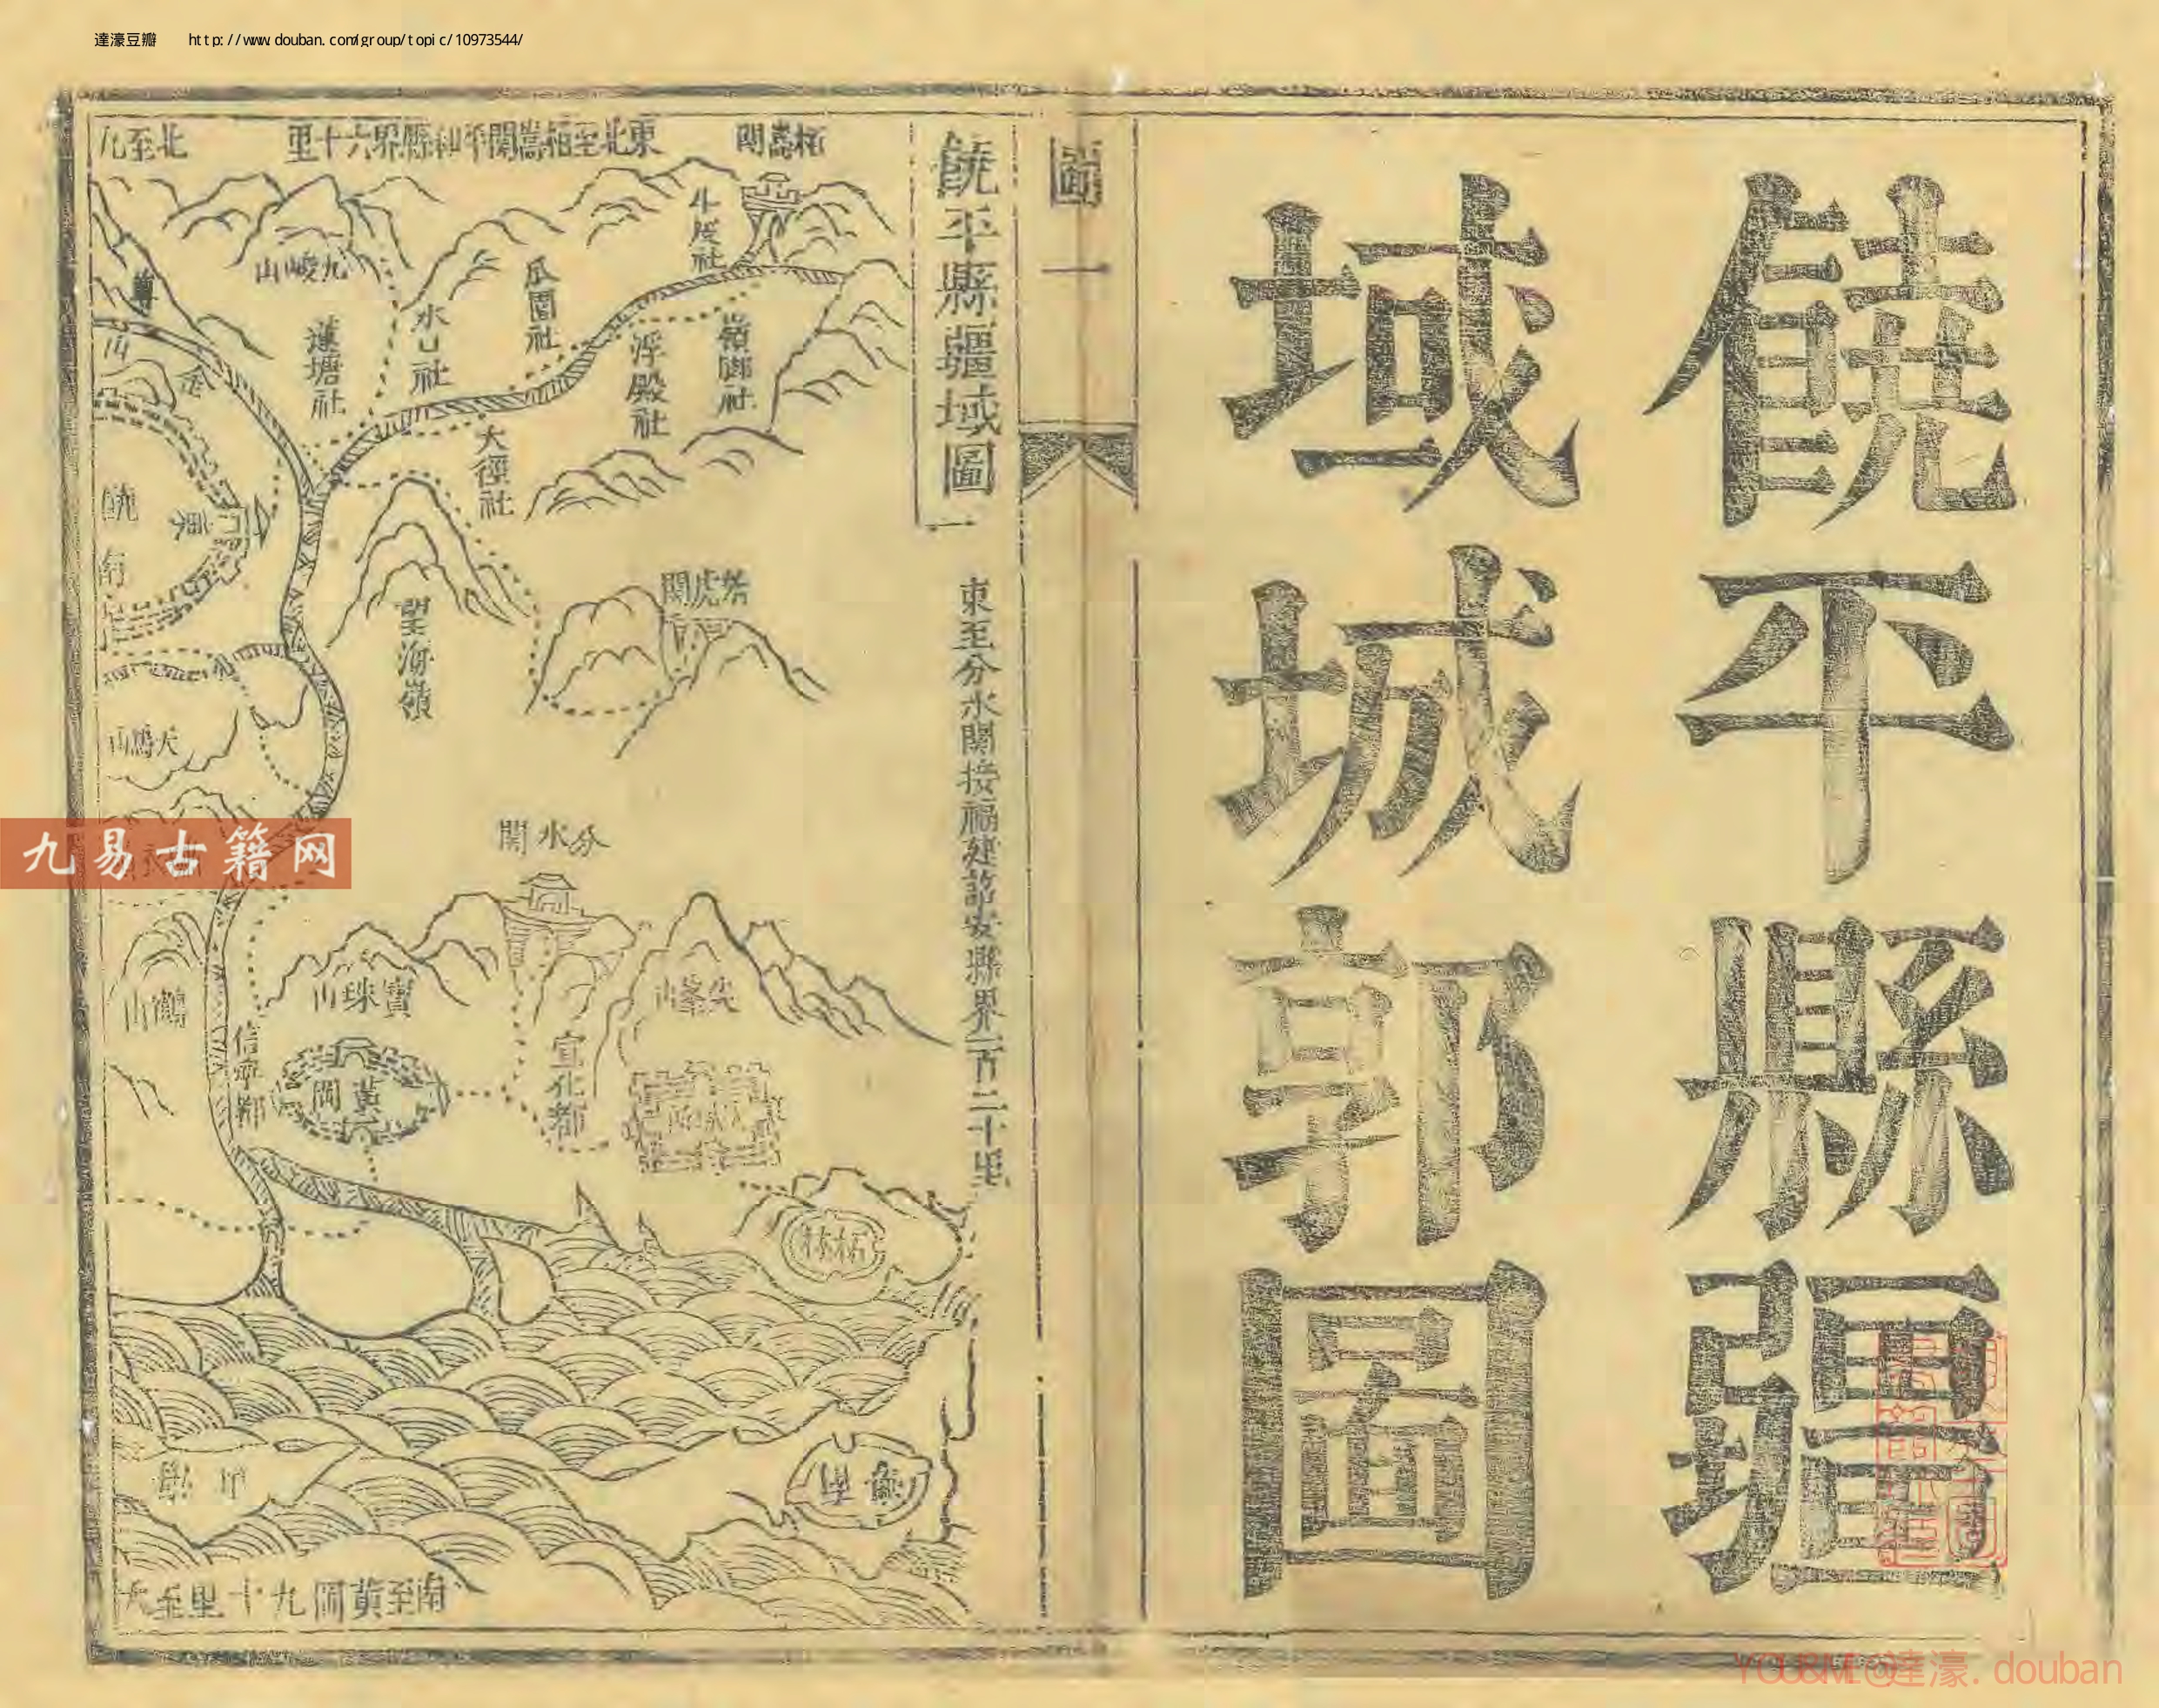 達濠豆瓣 http://www.douban.com/group/topic/10973544/
饒平縣疆
域城郭圖
圖一
饒平縣疆域圖一
東至分水關接福建詔安縣界一百二十里
柏嵩關
東北至柏嵩關平和縣界六十里
北至九
斗陂社
九峻山
瓜園社
水口社
蓮塘社
嶺腳社
浮殿社
大徑社
山
饒
東
南
望海嶺
虎關
天馬山
分水關
九易古籍网
尖峯山
寶珠山
鶴山
宣化都
信寧都
黃岡
所
柘林
南至黃岡九十里至大
YOU&ME@達濠.douban